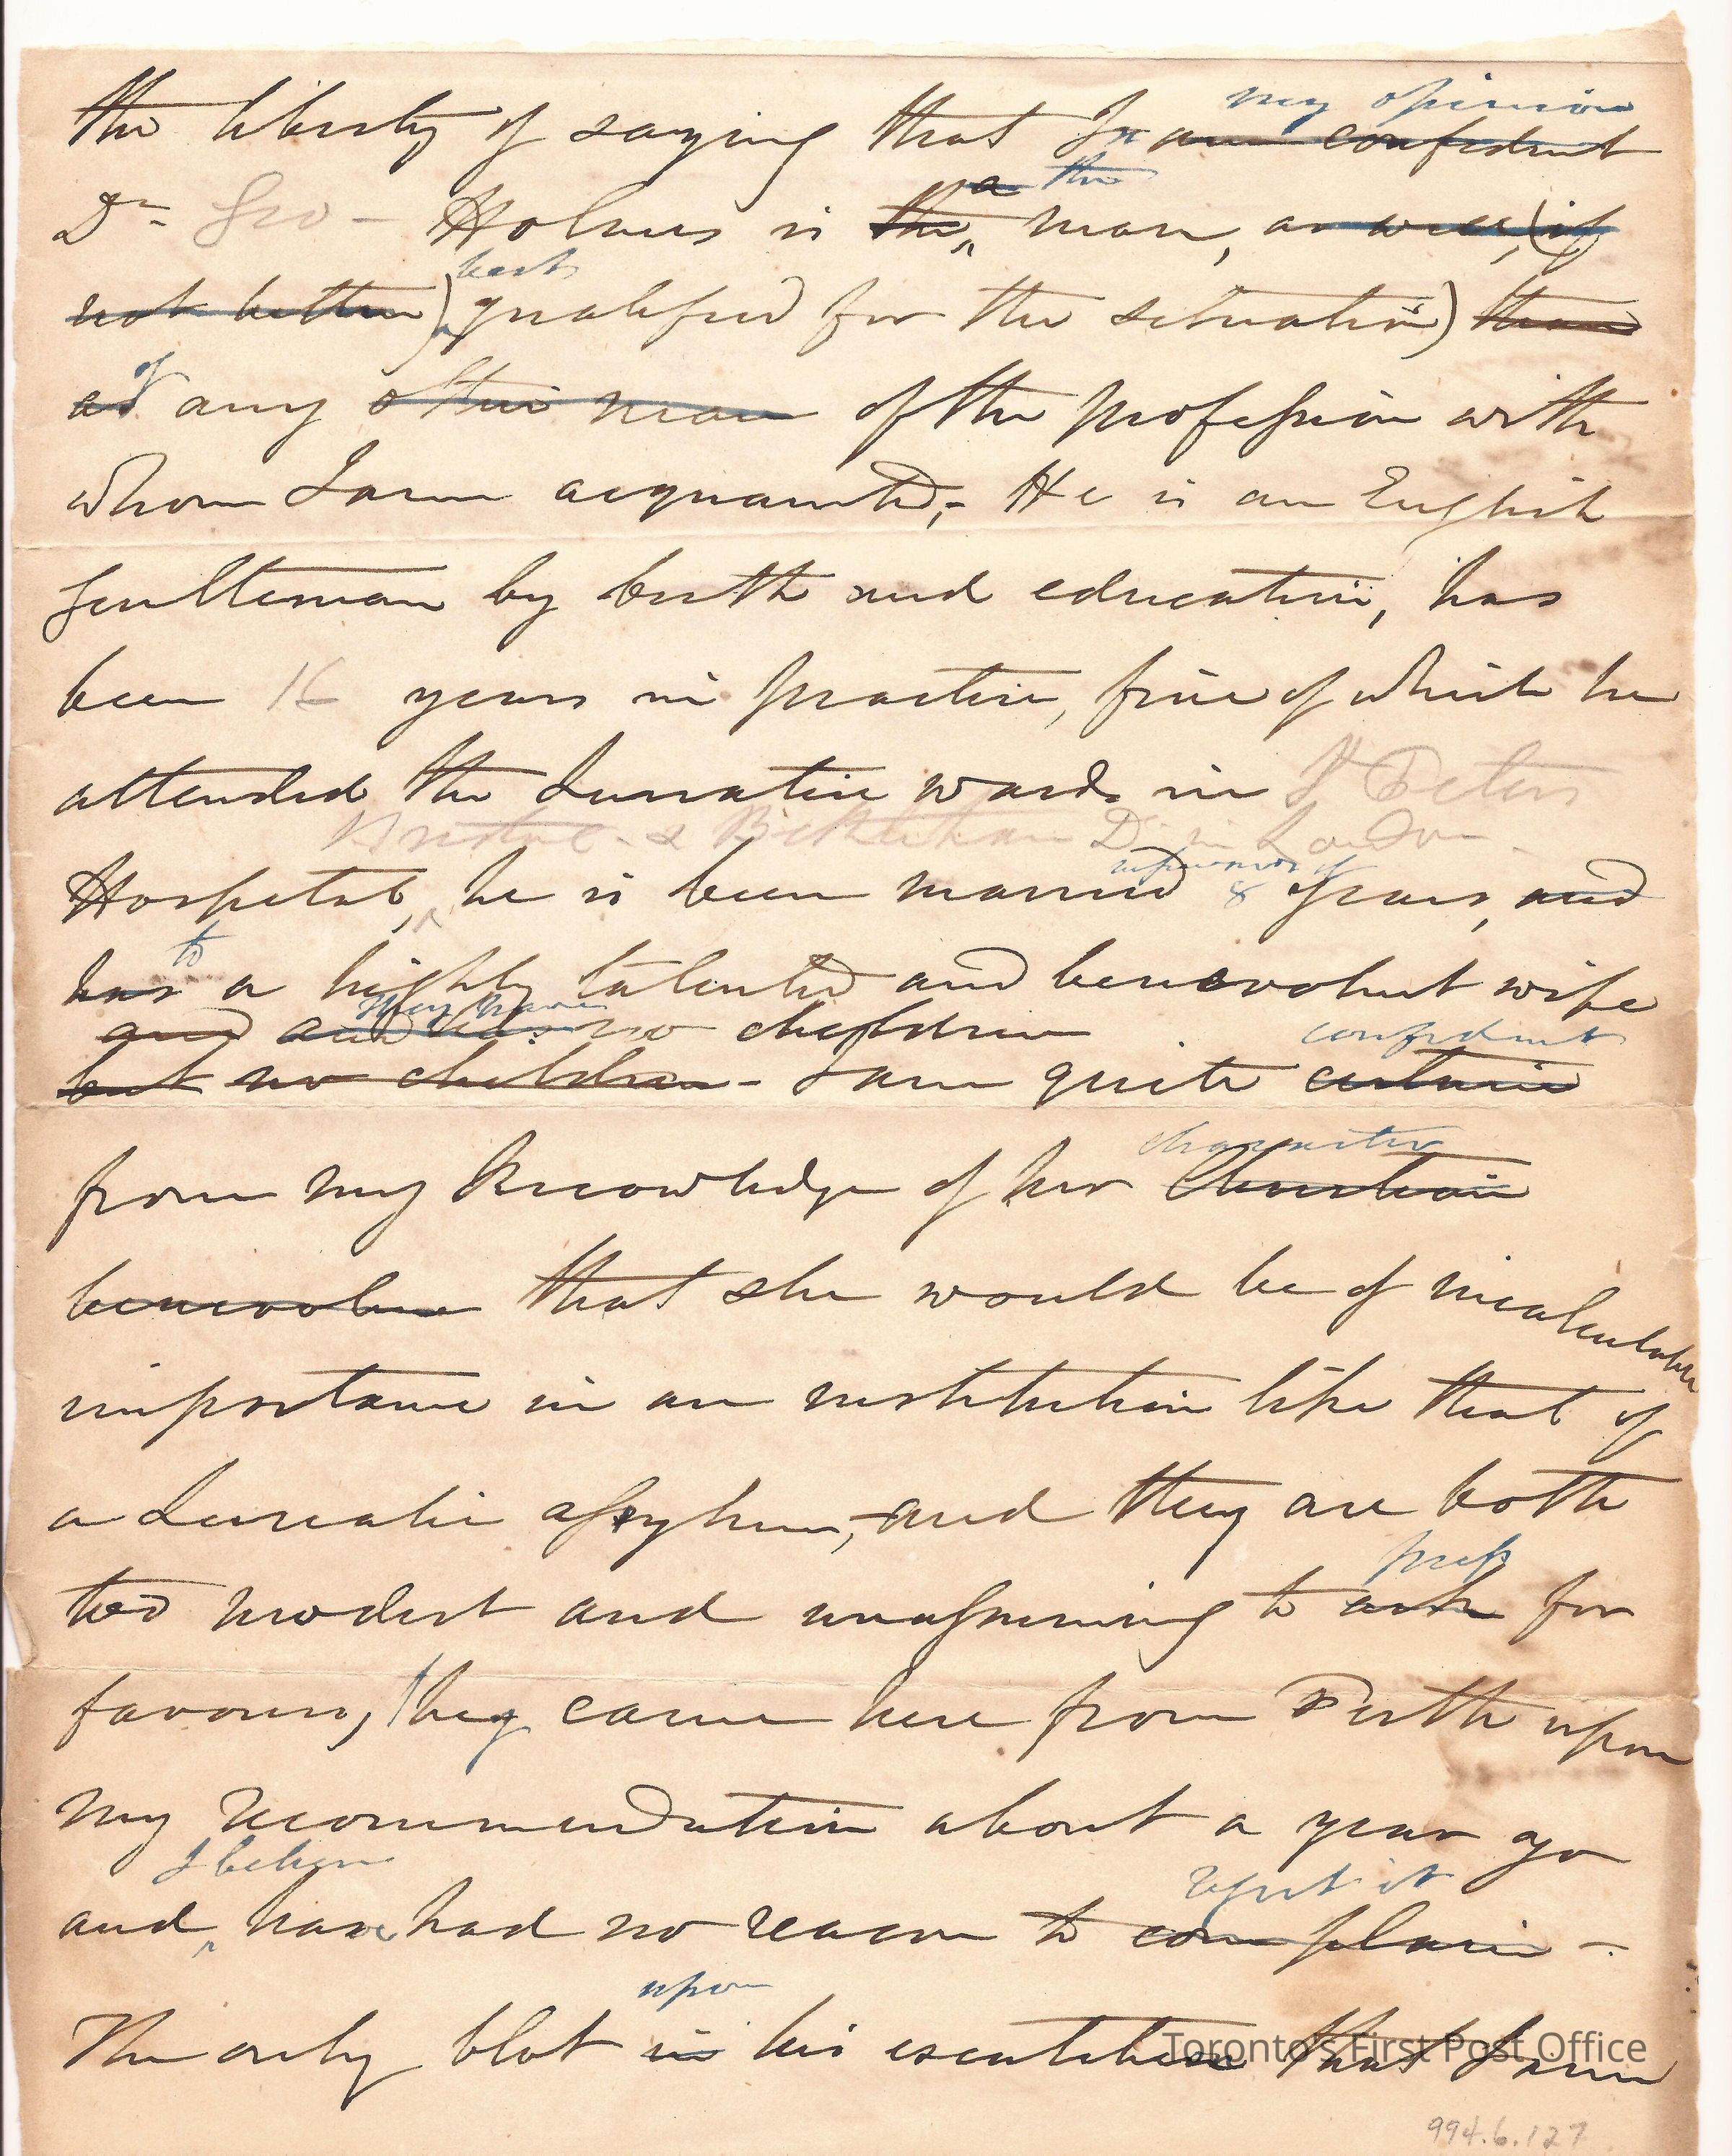 my opinion
the liberty of saying that In am confident
a the
Dr. Geo - Holmes is the man, as well, (if
best
not better) qualified for the situation) than
of
as any other man of the profession with
whom I am acquainted,- He is an English
gentleman by birth and education, has
been 16 years in practice, five of which he
attended the Lunatic wards in St Peters
Bristol - & Bethlehem Do in London -
upwards of
Hospital, he is been married 8 years, and
to
has a highly talented and benevolent wife
they have
and and has no children
confident
but no children - I am quite certain
character
from my knowledge of her Christian
benevolence that she would be of incalculable
importance in an institution like that of
a Lunatic assylum,- and they are both
press
too modest and unassuming to ask for
favours, they came here from Perth upon
my recommendation about a year ago
I believe regret it
and have had no reason to complain -
upon
The only blot in his escutcheon that I am
Toronto's First Post Office
994.6.127